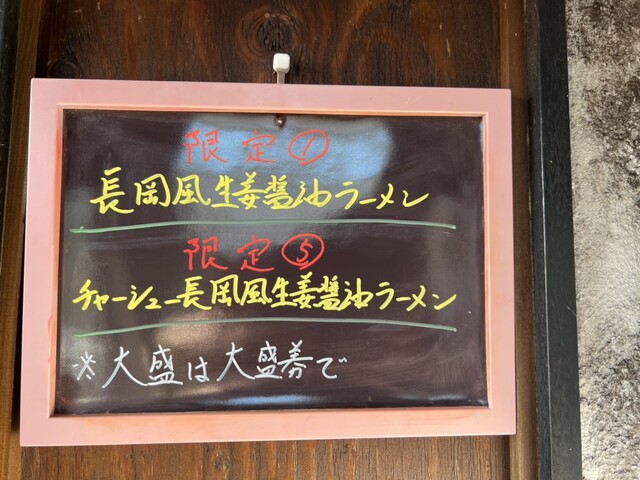 限定①
長岡風生姜醤油ラーメン
限定⑤
チャーシュー長岡風生姜醤油ラーメン
※大盛は大盛券で